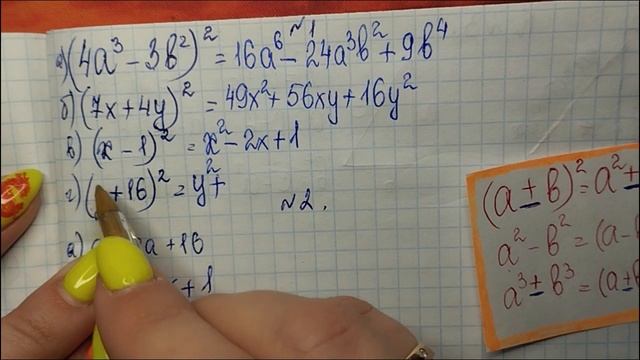 №1
а) (4a³ - 3b²)² = 16a⁶ - 24a³b² + 9b⁴
б) (7x + 4y)² = 49x² + 56xy + 16y²
в) (x - 1)² = x² - 2x + 1
г) ( + 16)² = y² +
№2.
а) a + 16
+ 1
(a ± b)² = a² ±
a² - b² = (a -
a³ ± b³ = (a ±